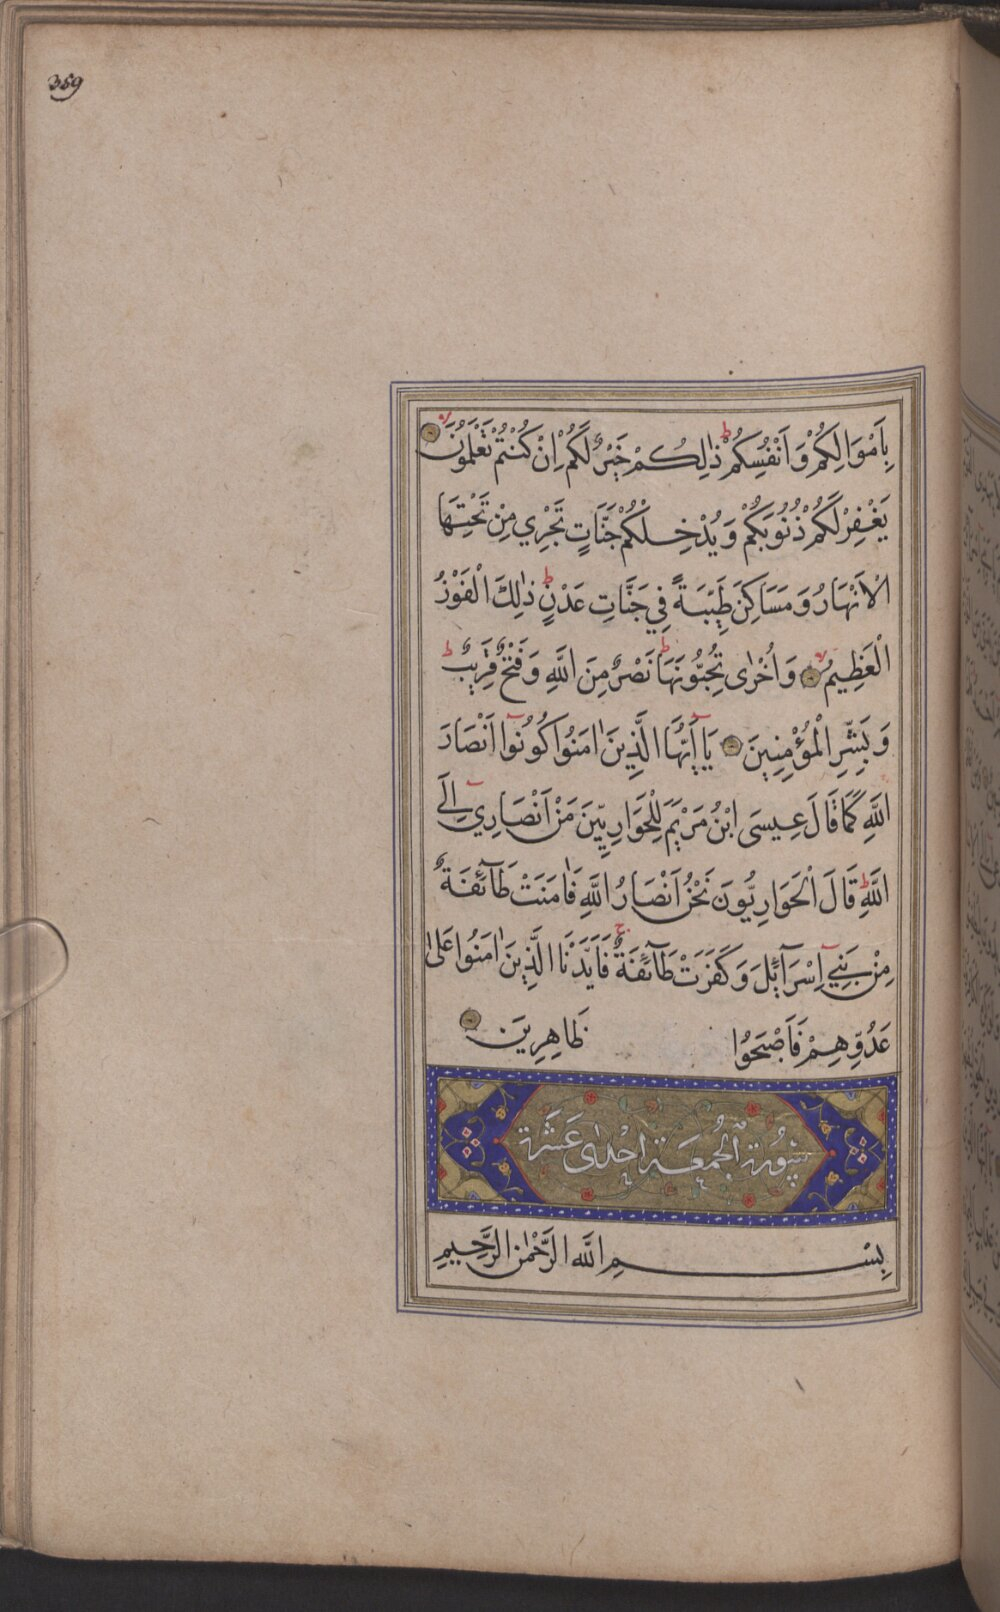 359
بِاَمْوَالِكُمْ وَاَنْفُسِكُمْ ط ذٰلِكُمْ خَيْرٌ لَكُمْ اِنْ كُنْتُمْ تَعْلَمُونَ لا
يَغْفِرْ لَكُمْ ذُنُوبَكُمْ وَيُدْخِلْكُمْ جَنَّاتٍ تَجْرِي مِنْ تَحْتِهَا
الْاَنْهَارُ وَمَسَاكِنَ طَيِّبَةً فِي جَنَّاتِ عَدْنٍ ط ذٰلِكَ الْفَوْزُ
الْعَظِيمُ لا وَاُخْرٰى تُحِبُّونَهَا ط نَصْرٌ مِنَ اللَّهِ وَفَتْحٌ قَرِيبٌ ط
وَبَشِّرِ الْمُؤْمِنِينَ يَآ اَيُّهَا الَّذِينَ اٰمَنُوا كُونُوٓا اَنْصَارَ
اللَّهِ كَمَا قَالَ عِيسَى ابْنُ مَرْيَمَ لِلْحَوَارِيِّينَ مَنْ اَنْصَارِيٓ اِلَى
اللَّهِ ط قَالَ الْحَوَارِيُّونَ نَحْنُ اَنْصَارُ اللَّهِ فَاٰمَنَتْ طَآئِفَةٌ
مِنْ بَنِيٓ اِسْرَآئِلَ وَكَفَرَتْ طَآئِفَةٌ ج فَاَيَّدْنَا الَّذِينَ اٰمَنُوا عَلٰى
عَدُوِّهِمْ فَاَصْبَحُوا ظَاهِرِينَ
سُورَةُ الْجُمُعَةِ اِحْدٰى عَشَرَة
بِسْمِ اللَّهِ الرَّحْمٰنِ الرَّحِيمِ